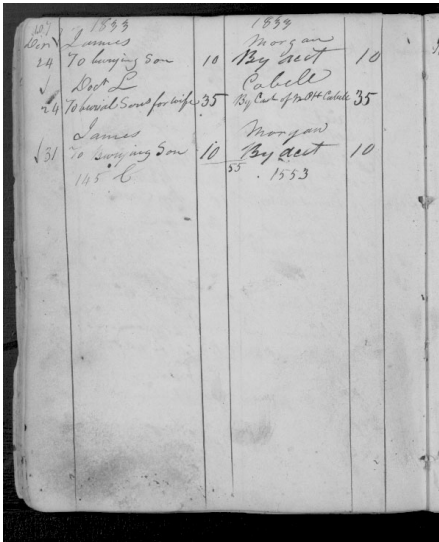 1833 1833
James Morgan
24 To burying Son 10 By acct 10
Doct L Cabell
24 To burial Servs for wife 35 By Cash of Cabell 35
James Morgan
31 To Burying Son 10 By acct 10
145 55 1553